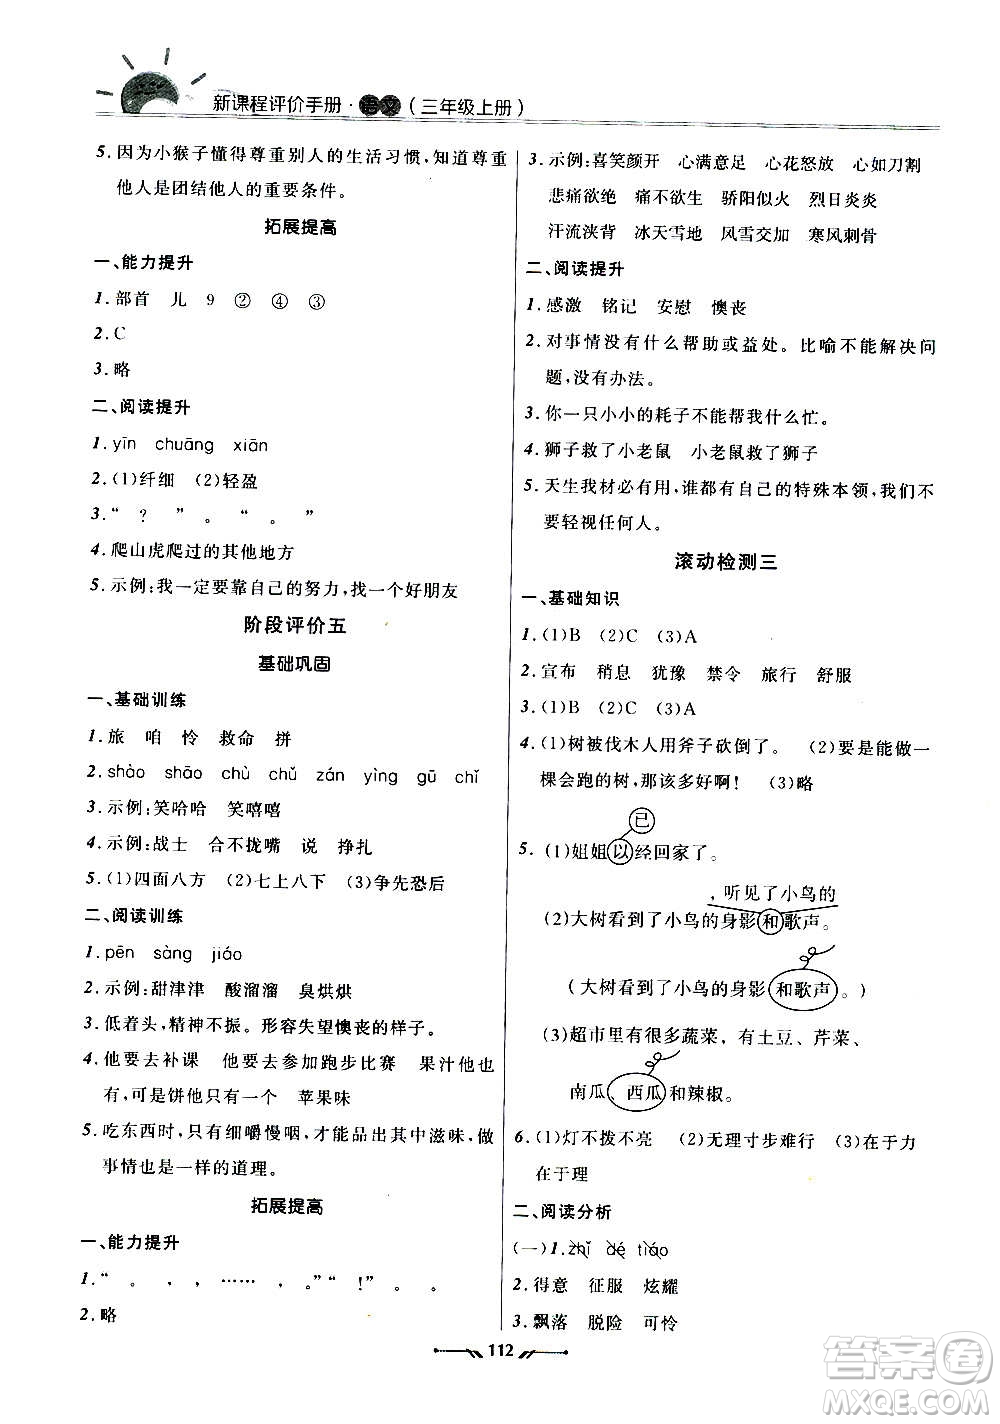 新课程评价手册·语文(三年级上册)
5.因为小猴子懂得尊重别人的生活习惯,知道尊重
他人是团结他人的重要条件。
拓展提高
一、能力提升
1.部首 儿 9 ② ④ ③
2.C
3.略
二、阅读提升
1.yīn chuāng xiān
2.(1)纤细 (2)轻盈
3.“ ? ” 。 “ 。 ”
4.爬山虎爬过的其他地方
5.示例:我一定要靠自己的努力,找一个好朋友
阶段评价五
基础巩固
一、基础训练
1.旅 咱 怜 救命 拼
2.shào shāo chù chǔ zán yìng gū chǐ
3.示例:笑哈哈 笑嘻嘻
4.示例:战士 合不拢嘴 说 挣扎
5.(1)四面八方 (2)七上八下 (3)争先恐后
二、阅读训练
1.pēn sàng jiáo
2.示例:甜津津 酸溜溜 臭烘烘
3.低着头,精神不振。形容失望懊丧的样子。
4.他要去补课 他要去参加跑步比赛 果汁他有
可是饼他只有一个 苹果味
5.吃东西时,只有细嚼慢咽,才能品出其中滋味,做
事情也是一样的道理。
拓展提高
一、能力提升
1.“ 。 , , …… ,。”“ !” 。 。
2.略
3.示例:喜笑颜开 心满意足 心花怒放 心如刀割
悲痛欲绝 痛不欲生 骄阳似火 烈日炎炎
汗流浃背 冰天雪地 风雪交加 寒风刺骨
二、阅读提升
1.感激 铭记 安慰 懊丧
2.对事情没有什么帮助或益处。比喻不能解决问
题,没有办法。
3.你一只小小的耗子不能帮我什么忙。
4.狮子救了小老鼠 小老鼠救了狮子
5.天生我材必有用,谁都有自己的特殊本领,我们不
要轻视任何人。
滚动检测三
一、基础知识
1.(1)B (2)C (3)A
2.宣布 稍息 犹豫 禁令 旅行 舒服
3.(1)B (2)C (3)A
4.(1)树被伐木人用斧子砍倒了。 (2)要是能做一
棵会跑的树,那该多好啊! (3)略
已
5.(1)姐姐以经回家了。
,听见了小鸟的
(2)大树看到了小鸟的身影和歌声。
(大树看到了小鸟的身影和歌声。)
(3)超市里有很多蔬菜,有土豆、芹菜、
南瓜、西瓜和辣椒。
6.(1)灯不拨不亮 (2)无理寸步难行 (3)在于力
在于理
二、阅读分析
(一)1.zhǐ dé tiáo
2.得意 征服 炫耀
3.飘落 脱险 可怜
112
答案圈
MXQE.COM